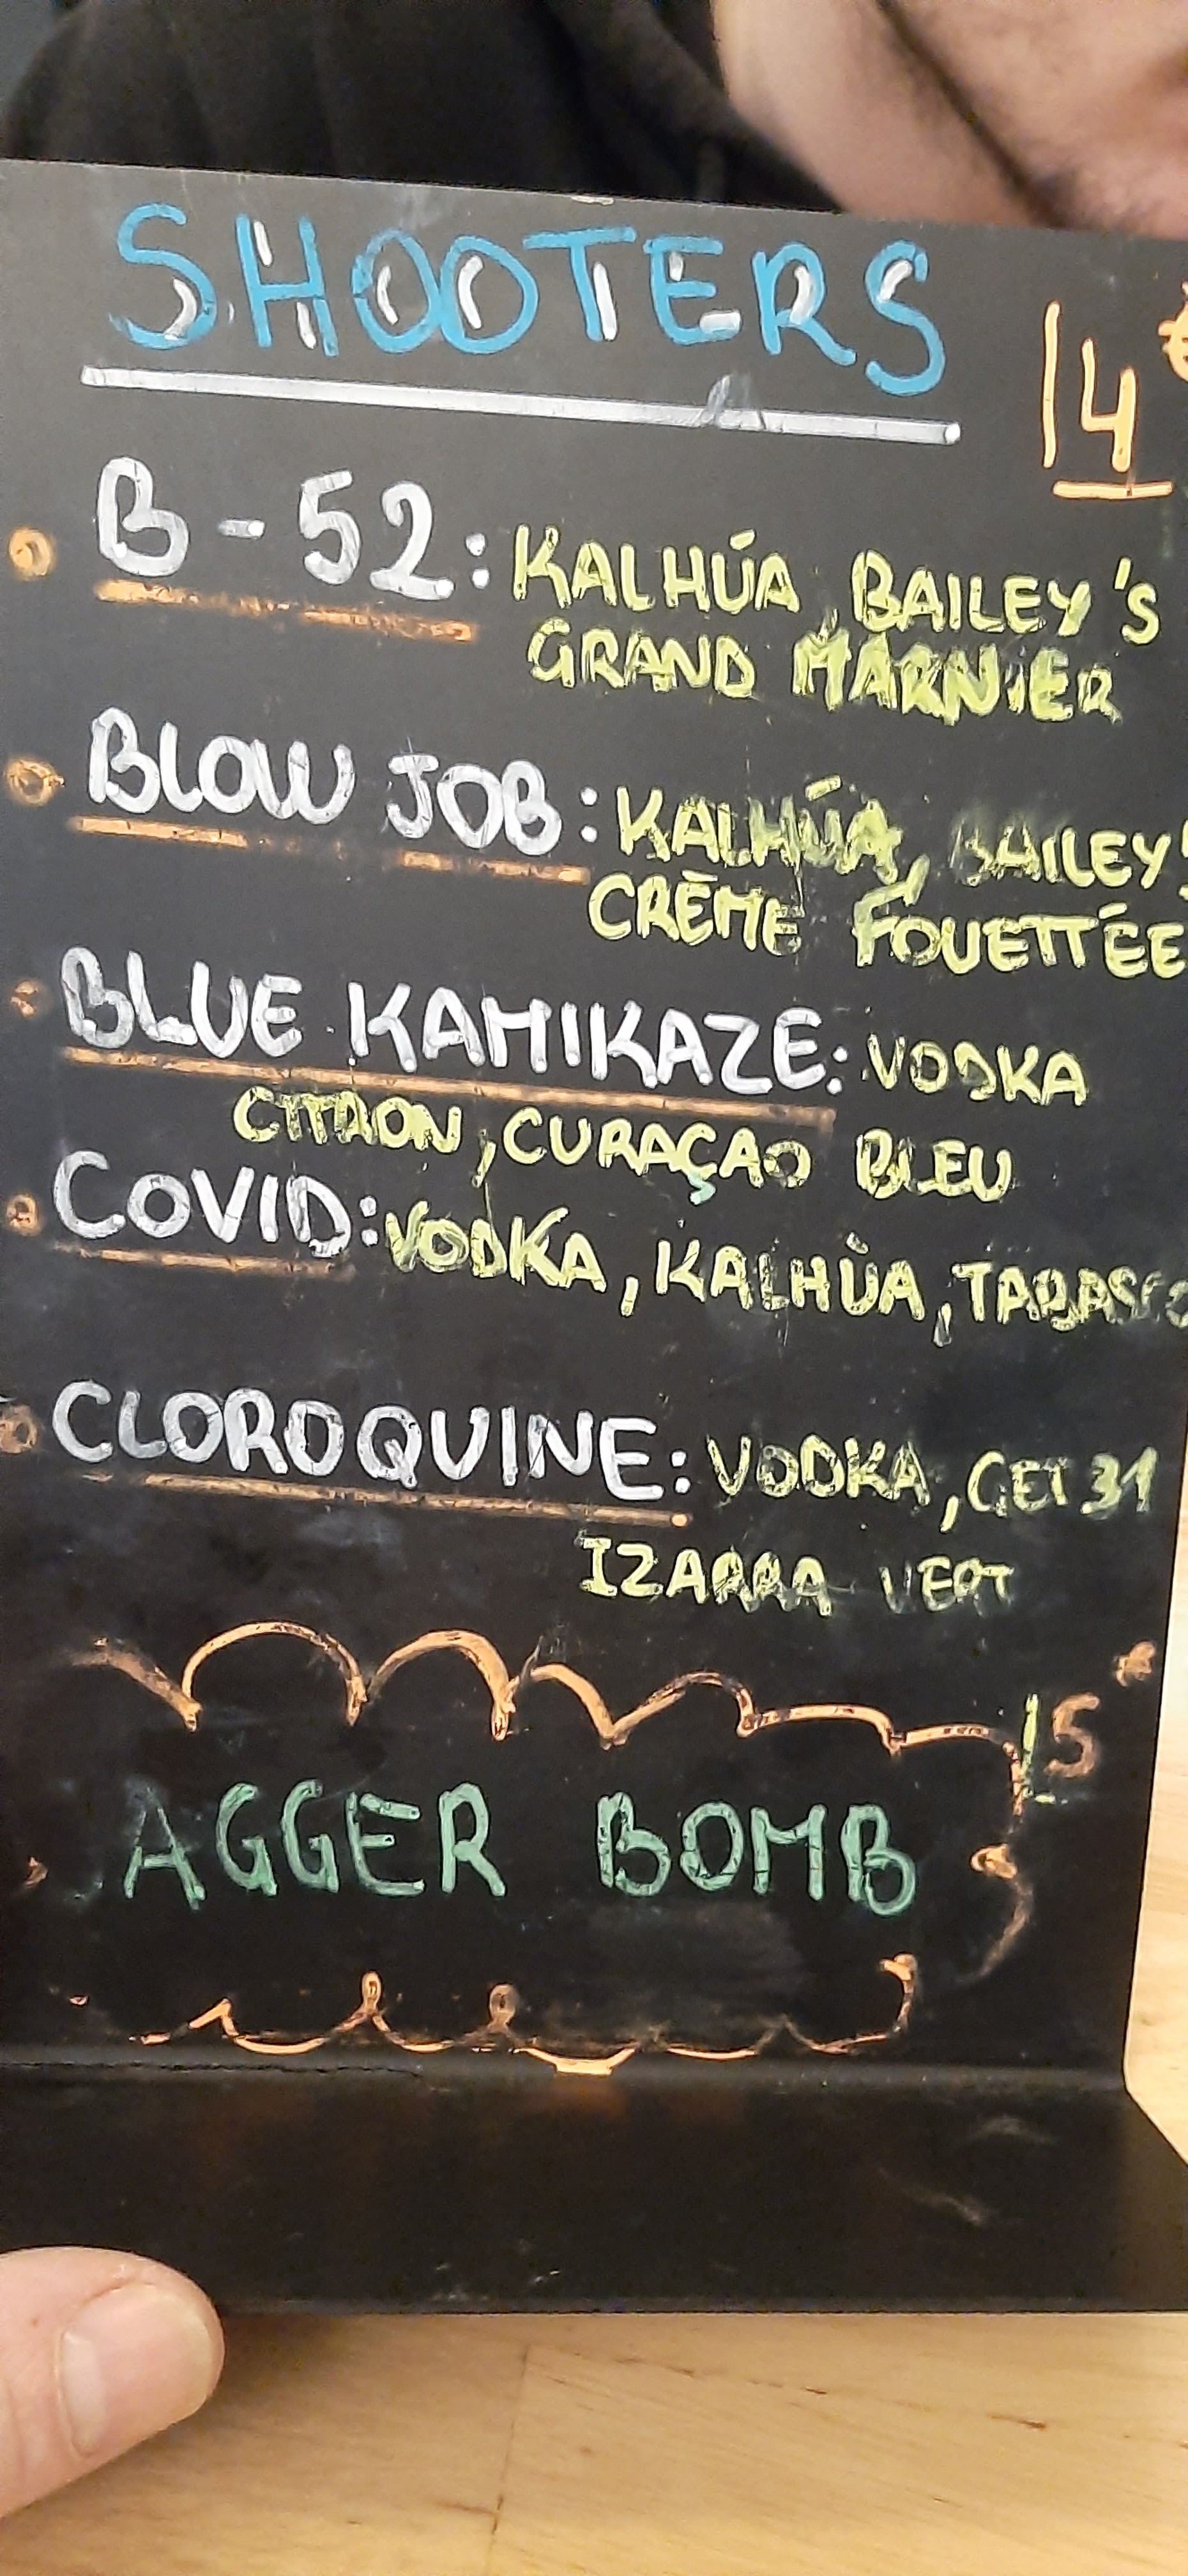 SHOOTERS
4 €
B-52: KALHÚA, BAILEY'S
GRAND MARNIER
BLOW JOB: KALHÚA, BAILEY'S
CRÈME FOUETTÉE
BLUE KAMIKAZE: VODKA
CITRON, CURAÇAO BLEU
COVID: VODKA, KALHÙA, TABASCO
CLOROQUINE: VODKA, GET 31
IZARRA VERT
5
AGGER BOMB